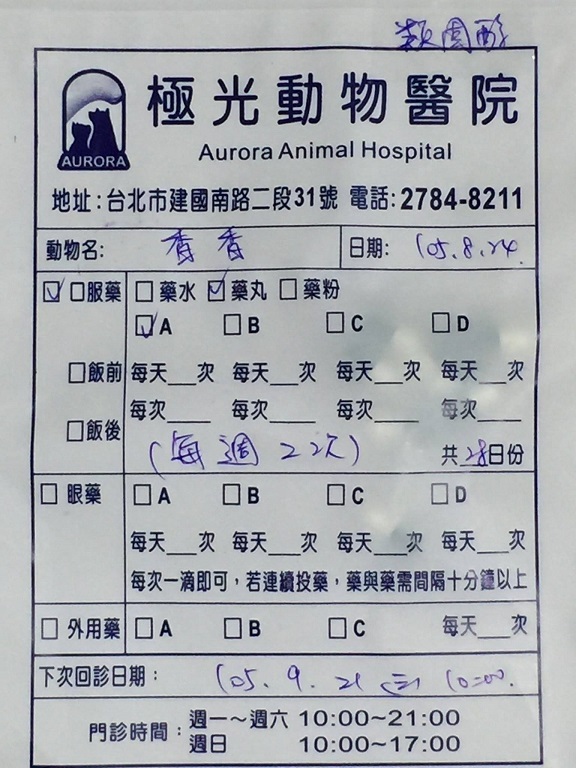 類固醇
AURORA
極光動物醫院
Aurora Animal Hospital
地址:台北市建國南路二段31號 電話:2784-8211
動物名: 香香 日期: 105.8.24.
☑口服藥 □藥水 ☑藥丸 □藥粉
☑A □B □C □D
□飯前 每天__次 每天__次 每天__次 每天__次
每次___ 每次___ 每次___ 每次___
□飯後
(每週2次) 共28日份
□眼藥 □A □B □C □D
每天__次 每天__次 每天__次 每天__次
每次一滴即可,若連續投藥,藥與藥需間隔十分鐘以上
□外用藥 □A □B □C 每天__次
下次回診日期: 105.9.21 三 10:00.
門診時間: 週一~週六 10:00~21:00
週日 10:00~17:00